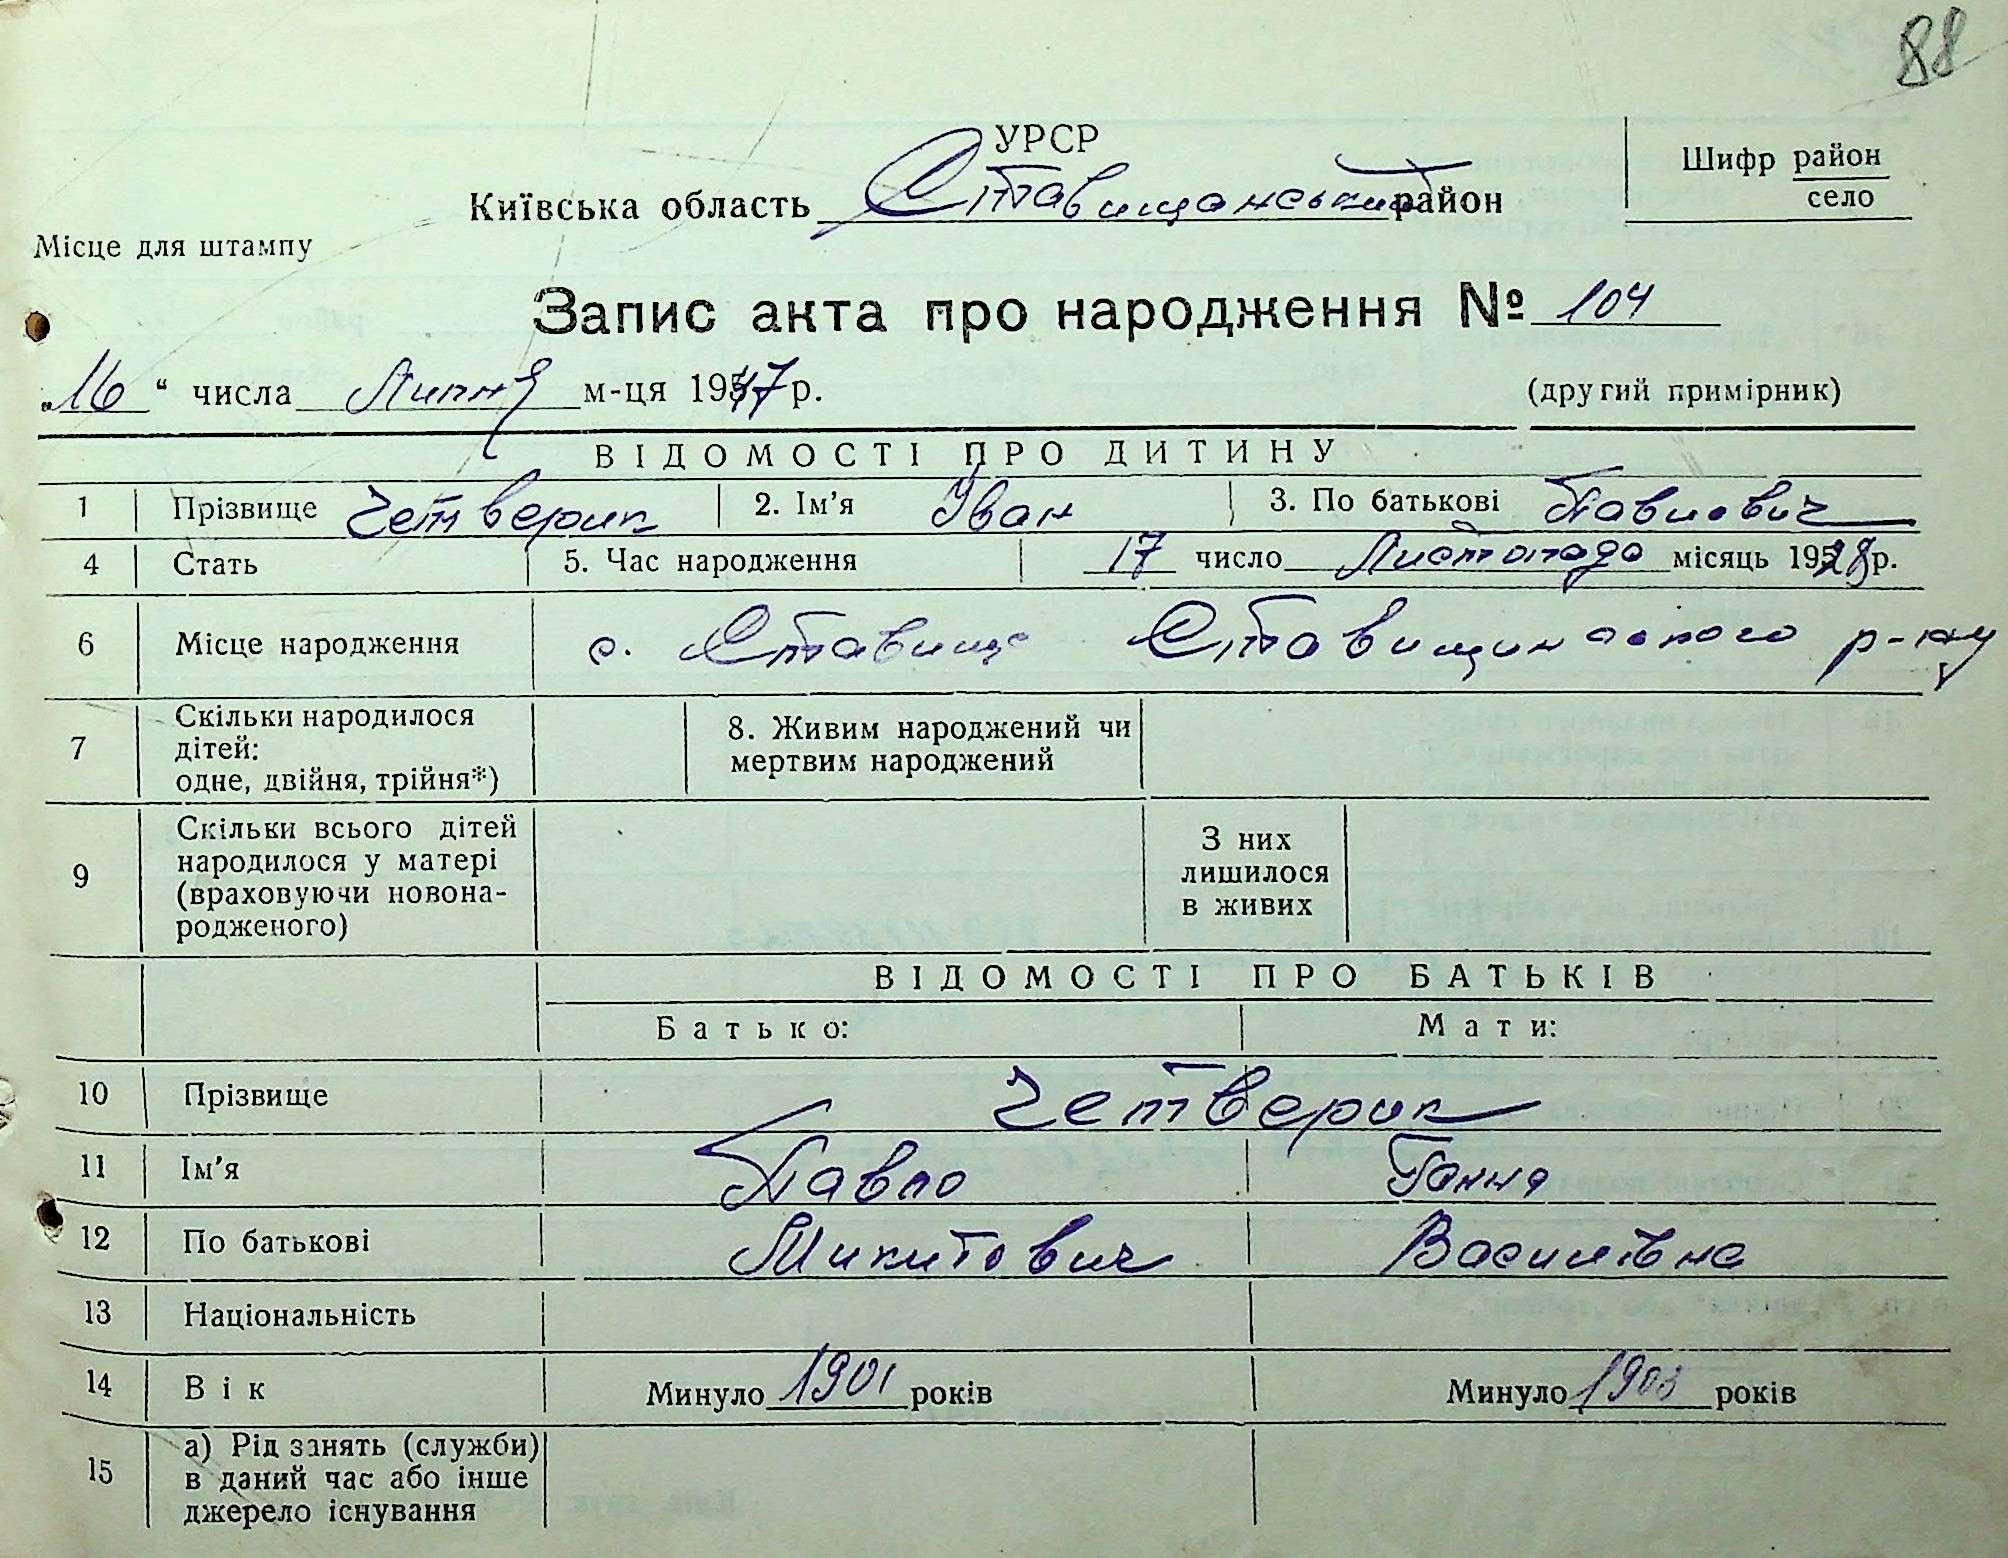 88
УРСР
Київська область Ставищанський район
Шифр район
село
Місце для штампу
Запис акта про народження № 104
„16“ числа Липня м-ця 1957 р.
(другий примірник)
ВІДОМОСТІ ПРО ДИТИНУ
1 Прізвище Четверик 2. Ім'я Іван 3. По батькові Павлович
4 Стать 5. Час народження 17 число Листопада місяць 1928 р.
6 Місце народження с. Ставище Ставищинського р-ну
7 Скільки народилося
дітей:
одне, двійня, трійня*)
8. Живим народжений чи
мертвим народжений
9 Скільки всього дітей
народилося у матері
(враховуючи новона-
родженого)
З них
лишилося
в живих
ВІДОМОСТІ ПРО БАТЬКІВ
Батько: Мати:
10 Прізвище Четверик
11 Ім'я Павло Ганна
12 По батькові Микитович Василівна
13 Національність
14 Вік Минуло 1901 років Минуло 1903 років
15 а) Рід занять (служби)
в даний час або інше
джерело існування